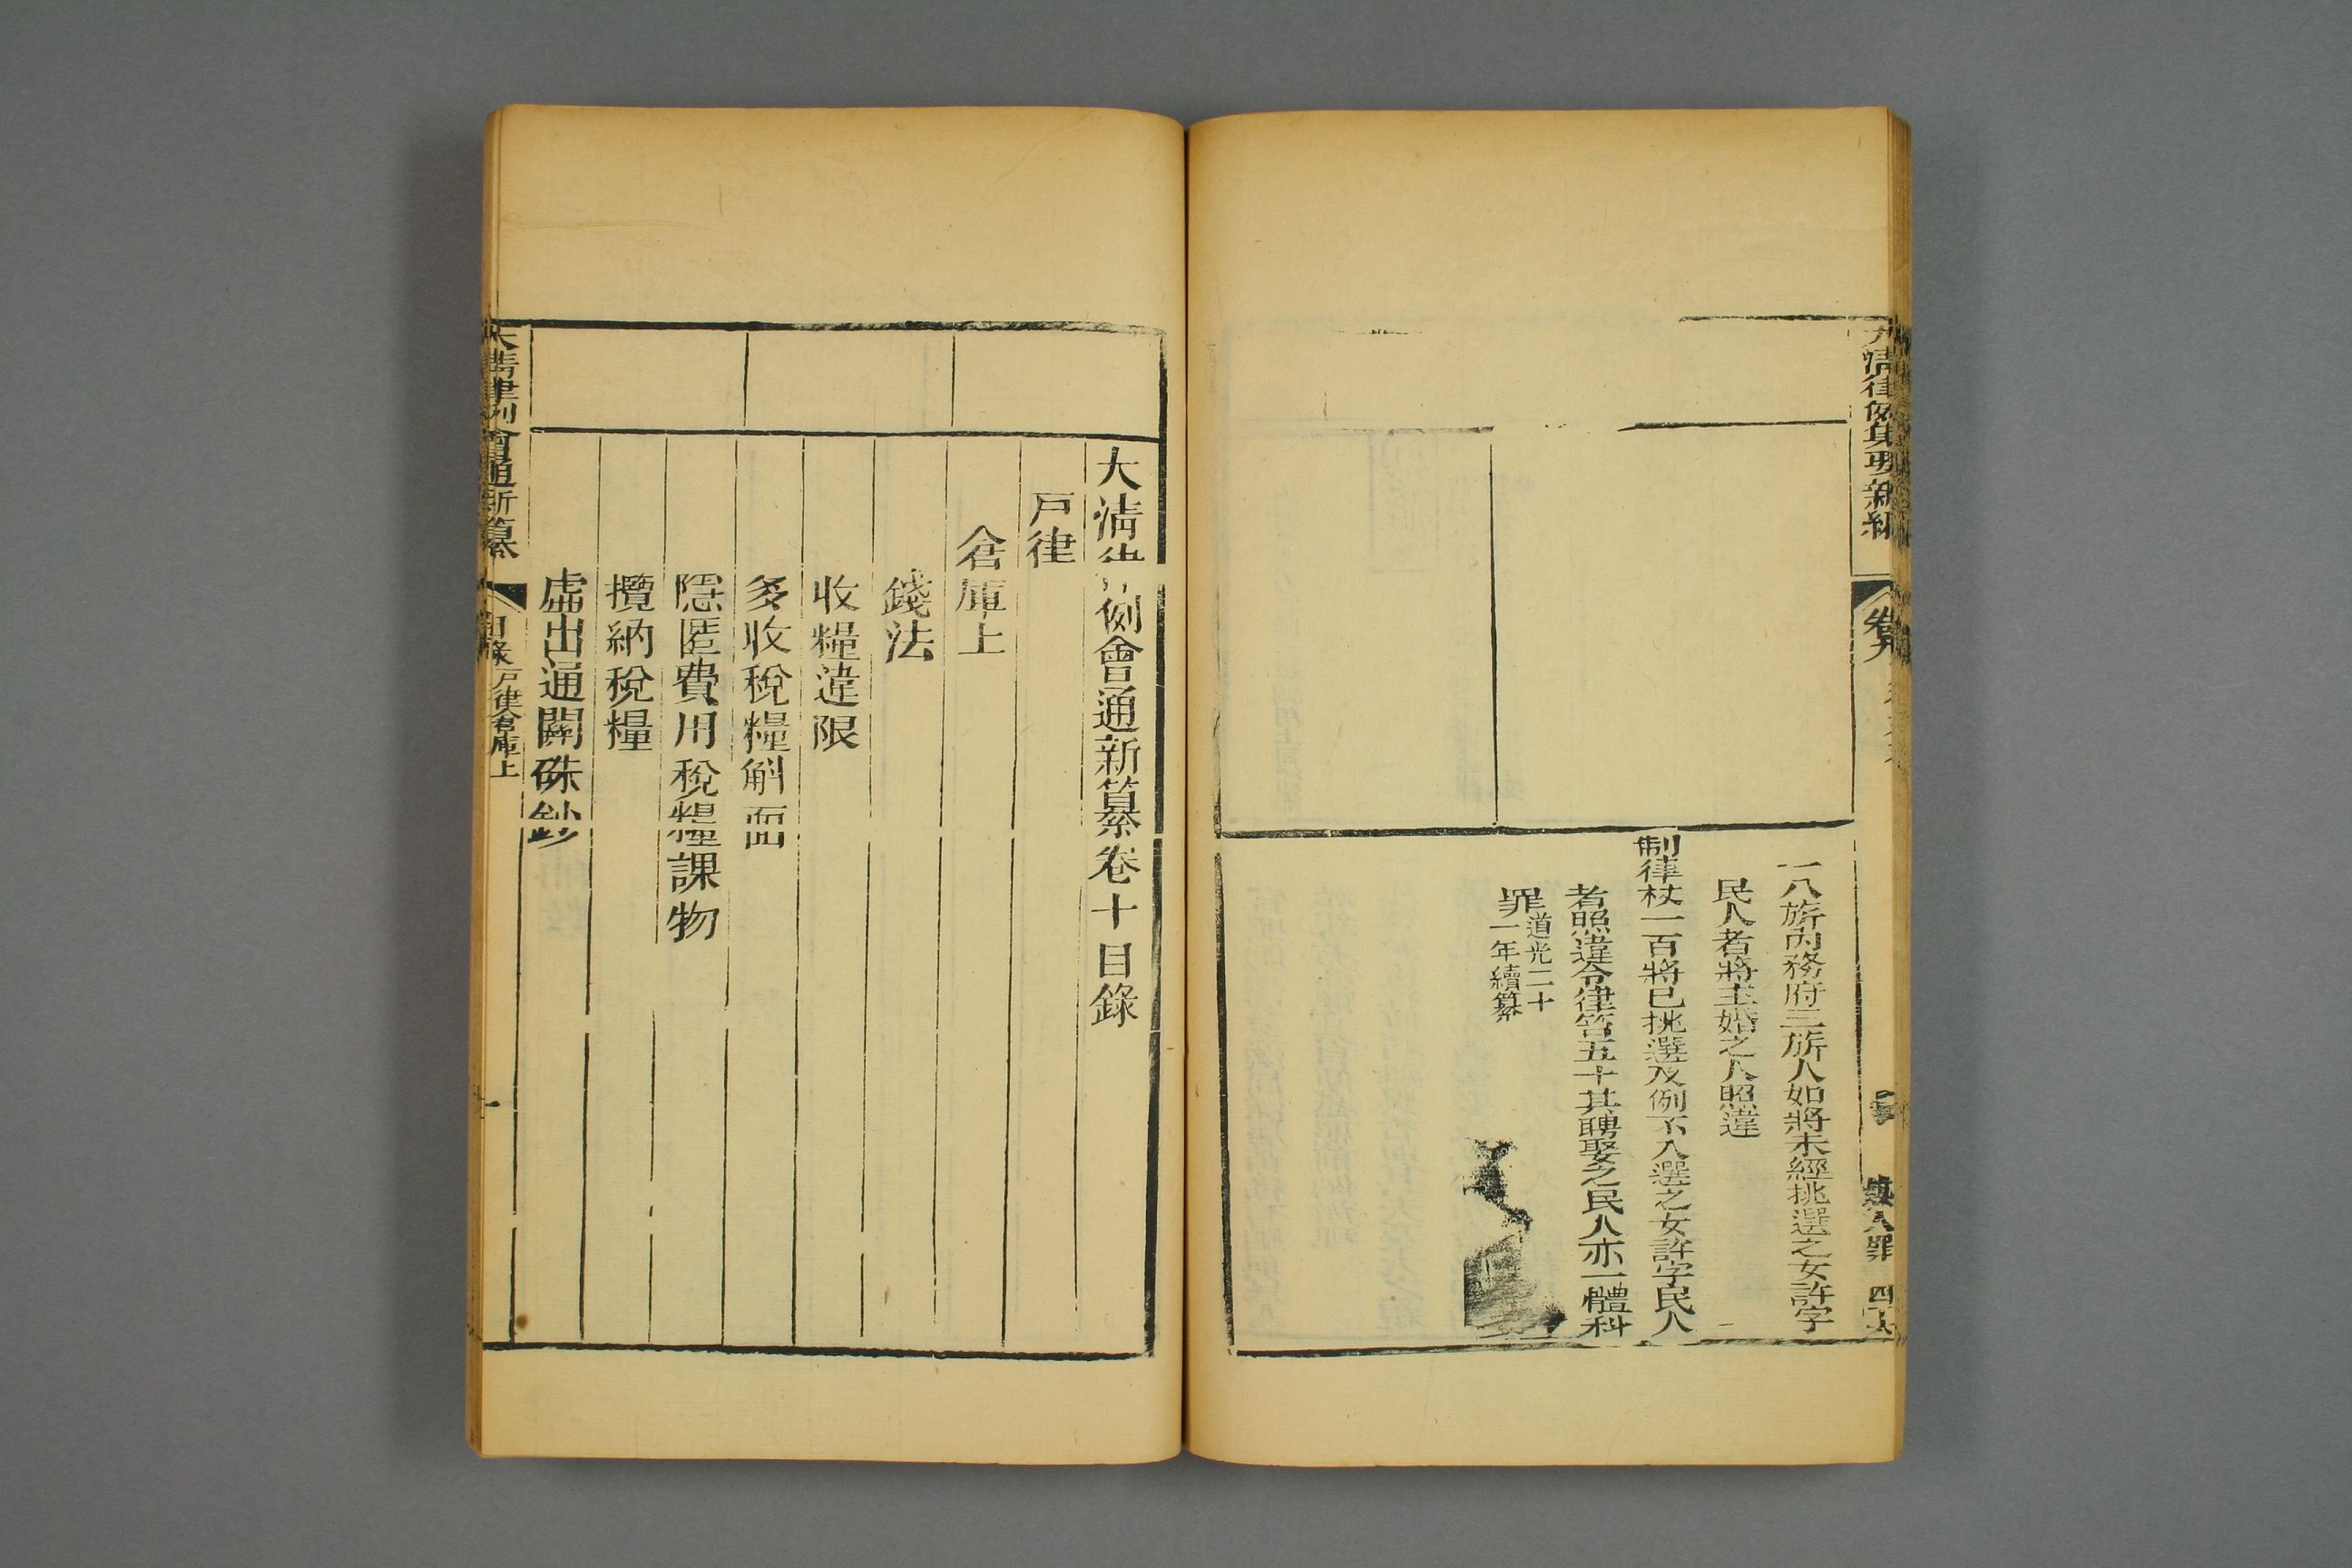 大清律例集要新編
卷九
嫁
人罪
一八旂內務府三旂人如將未經挑選之女許字
民人者將主婚之人照違
制律杖一百將已挑選及例不入選之女許字民人
者照違令律笞五十其聘娶之民人亦一體科
罪道光二十
一年續纂
大清律例會通新纂卷十目錄
戶律
倉庫上
錢法
收糧違限
多收稅糧斛面
隱匿費用稅糧課物
攬納稅糧
虛出通關硃鈔
大清律例會通新纂
目錄戶律倉庫上
一